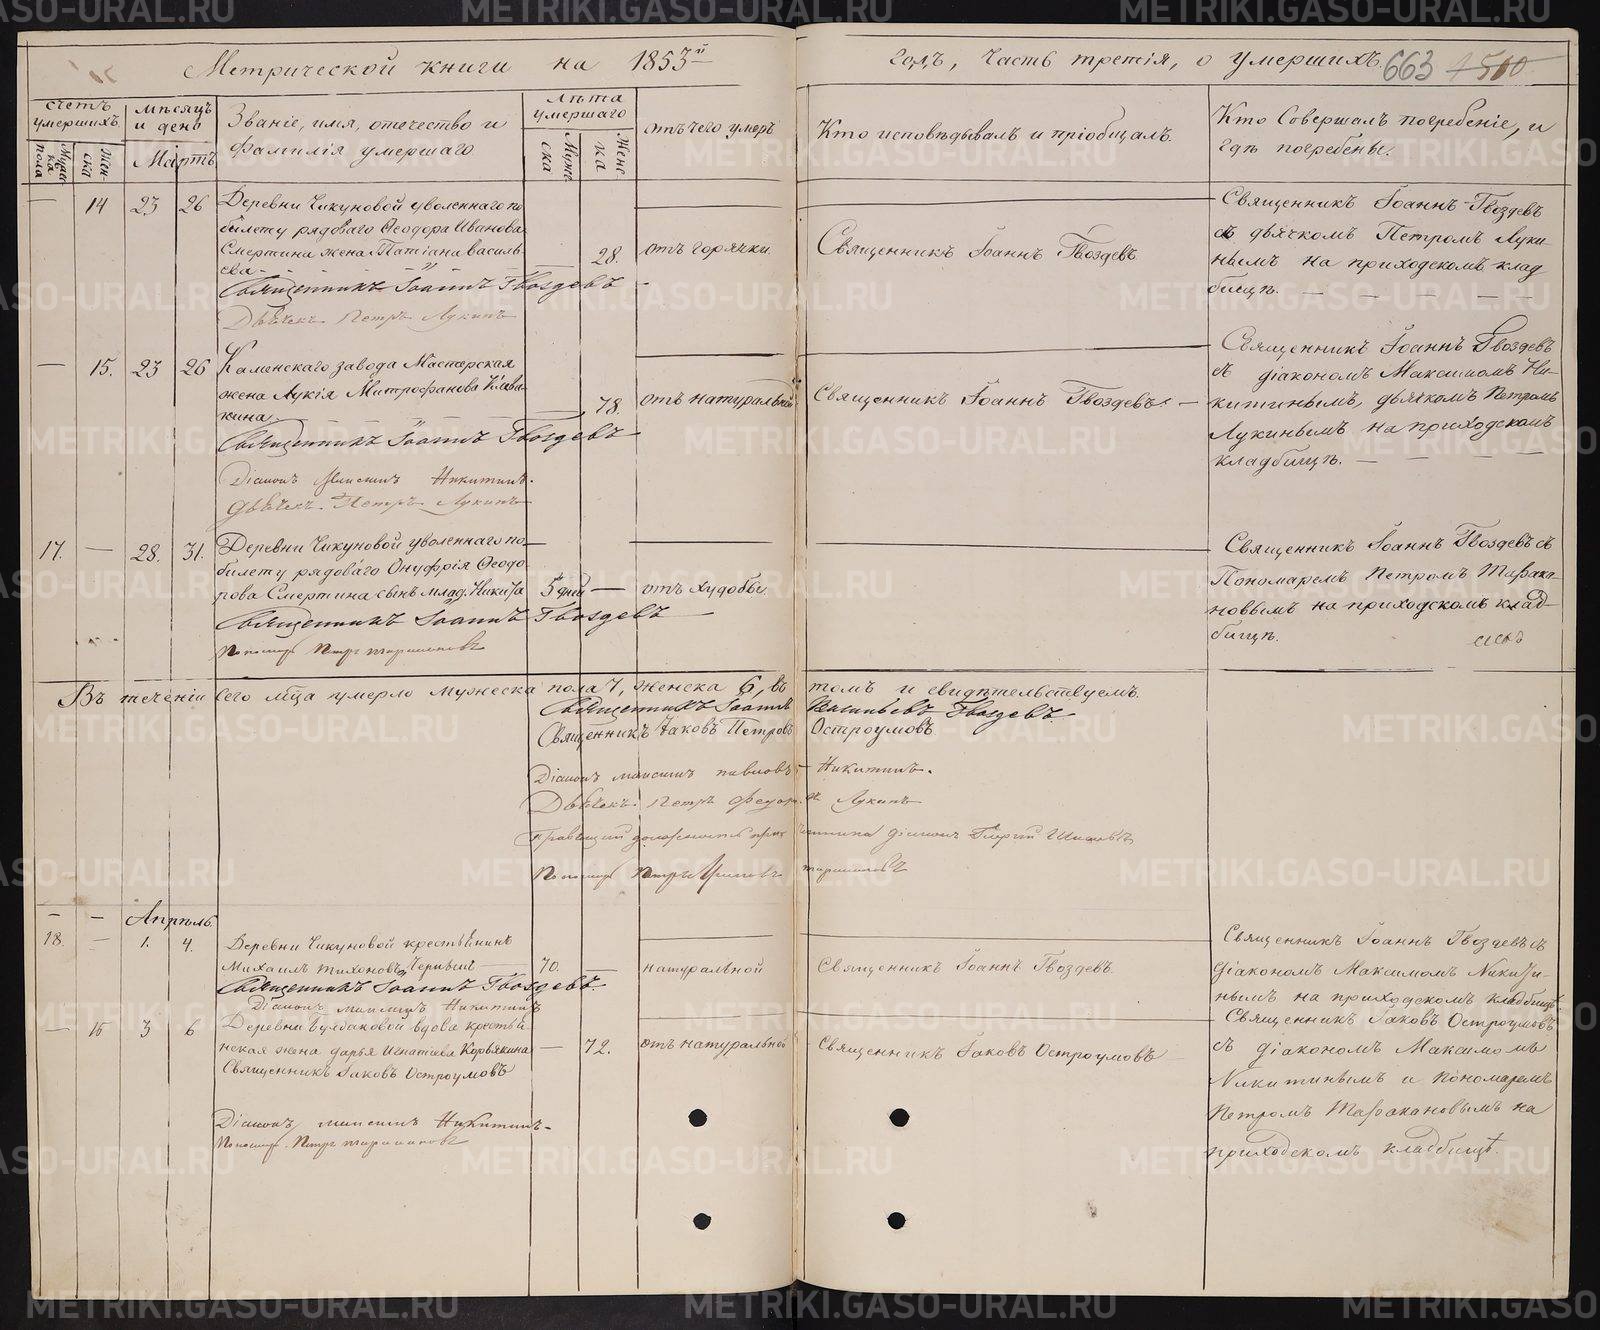 Метрической книги на 1853й годъ, часть третія, о умершихъ. 663
счетъ умершихъ
мѣсяцъ и день
Званіе, имя, отечество и фамилія умершаго
лѣта умершаго
отъ чего умеръ
Кто исповѣдывалъ и пріобщалъ.
Кто Совершалъ погребеніе, и гдѣ погребены.
Мартъ
— 14 23 26
Деревни Чикуновой уволеннаго по
билету рядоваго Ѳеодора Иванова
Смертина жена Татіана Василь-
ева
28.
отъ горячки.
Священникъ Іоаннъ Гвоздевъ
Священникъ Іоаннъ Гвоздевъ
съ дьячкомъ Петромъ Луки-
нымъ на приходскомъ клад
бищѣ.
Священникъ Іоаннъ Гвоздевъ
Дьячекъ Петръ Лукинъ
— 15. 23 26
Каменскаго завода Мастерская
жена Лукія Митрофанова
78.
отъ натуральной
Священникъ Іоаннъ Гвоздевъ. —
Священникъ Іоаннъ Гвоздевъ
съ діакономъ Максимомъ Ни-
китинымъ, дьячкомъ Петромъ
Лукинымъ на приходскомъ
кладбищѣ.
Священникъ Іоаннъ Гвоздевъ
Діаконъ Максимъ Никитинъ.
Дьячекъ Петръ Лукинъ
17. — 28. 31.
Деревни Чикуновой уволеннаго по
билету рядоваго Онуфрія Ѳеодо
рова Смертина сынъ млад. Никита
5 дней —
отъ худобы.
Священникъ Іоаннъ Гвоздевъ съ
Пономаремъ Петромъ Тарака-
новымъ на приходскомъ клад-
бищѣ.
Священникъ Іоаннъ Гвоздевъ
Пономарь Петръ Таракановъ
Въ теченіи сего мца умерло мужеска пола 7, женска 6, въ томъ и свидѣтельствуемъ.
Священникъ Іоаннъ Васильевъ Гвоздевъ
Священникъ Іаковъ Петровъ Остроумовъ
Діаконъ Максимъ Павловъ Никитинъ.
Дьячекъ Петръ Федоровъ Лукинъ
Правящій должность причетника діаконъ
Пономарь Петръ Таракановъ
Апрѣль
18. — 1. 4.
Деревни Чикуновой крестьянинъ
Михаилъ Тихоновъ
70.
натуральной
Священникъ Іоаннъ Гвоздевъ
Священникъ Іоаннъ Гвоздевъ съ
діакономъ Максимомъ Никити-
нымъ на приходскомъ кладбищѣ
Священникъ Іоаннъ Гвоздевъ.
Діаконъ Максимъ Никитинъ
— 16 3 6
Деревни Булдаковой вдова крестьян-
ская жена Дарья Игнатіева Коровякина
— 72.
отъ натуральной
Священникъ Іаковъ Остроумовъ
Священникъ Іаковъ Остроумовъ
съ діакономъ Максимомъ
Никитинымъ и пономаремъ
Петромъ Таракановымъ на
приходскомъ кладбищѣ.
Священникъ Іаковъ Остроумовъ
Діаконъ Максимъ Никитинъ
Пономарь Петръ Таракановъ
METRIKI.GASO-URAL.RU